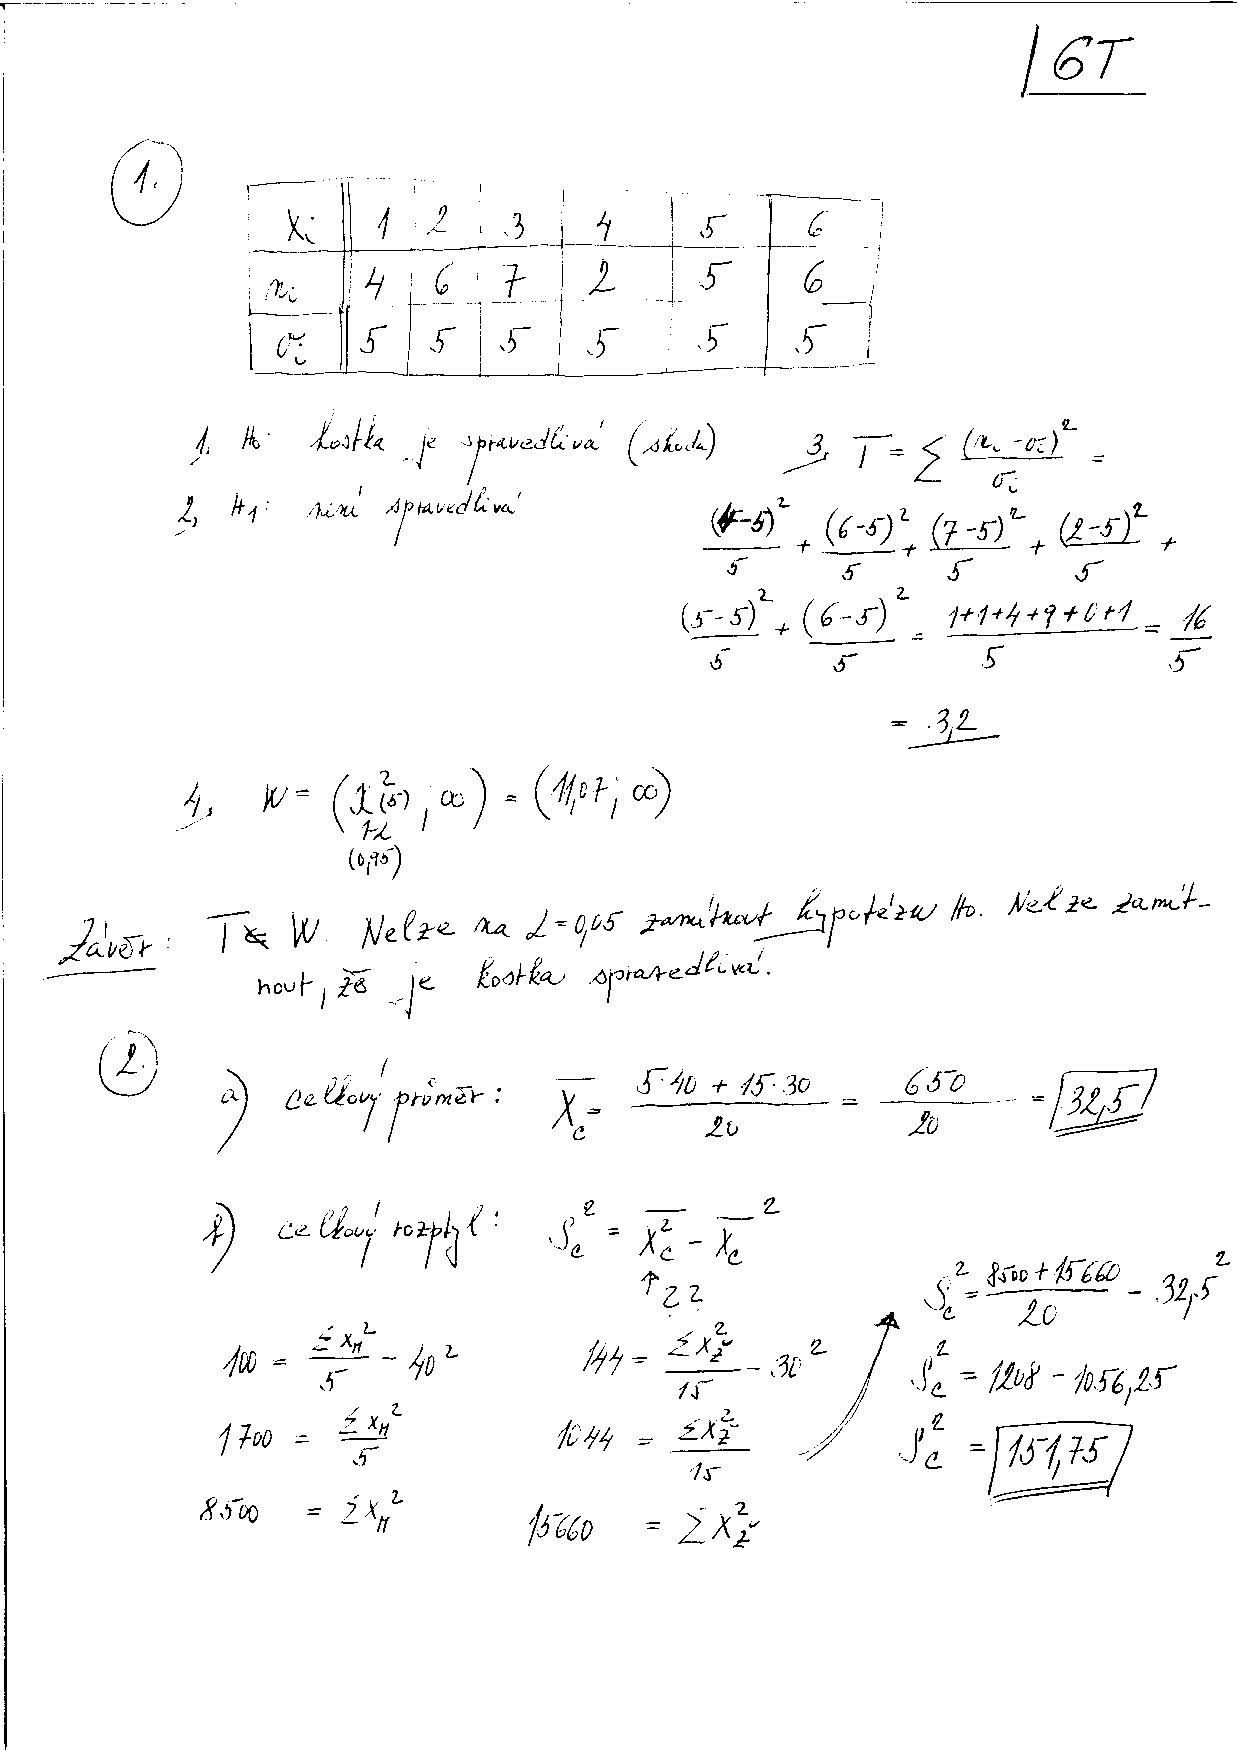 6T
1.
xᵢ 1 2 3 4 5 6
nᵢ 4 6 7 2 5 6
σᵢ 5 5 5 5 5 5
1, H₀: kostka je spravedlivá (shoda)
2, H₁: není spravedlivá
3, T = Σ (nᵢ - σᵢ)² / σᵢ =
(4-5)²/5 + (6-5)²/5 + (7-5)²/5 + (2-5)²/5 +
(5-5)²/5 + (6-5)²/5 = (1+1+4+9+0+1)/5 = 16/5
= 3,2
4, W = (χ²₁₋α(5) ; ∞) = (11,07; ∞)
(0,95)
Závěr: T ∉ W. Nelze na α=0,05 zamítnout hypotézu H₀. Nelze zamít-
nout, že je kostka spravedlivá.
2.
a) celkový průměr: x̄c = (5·40 + 15·30)/20 = 650/20 = 32,5
b) celkový rozptyl: Sc² = x̄c² - x̄c²
↑ ??
100 = Σx_M²/5 - 40²
1700 = Σx_M²/5
8500 = Σx_M²
144 = Σx_Ž²/15 - 30²
1044 = Σx_Ž²/15
15660 = Σx_Ž²
Sc² = (8500+15660)/20 - 32,5²
Sc² = 1208 - 1056,25
Sc² = 151,75